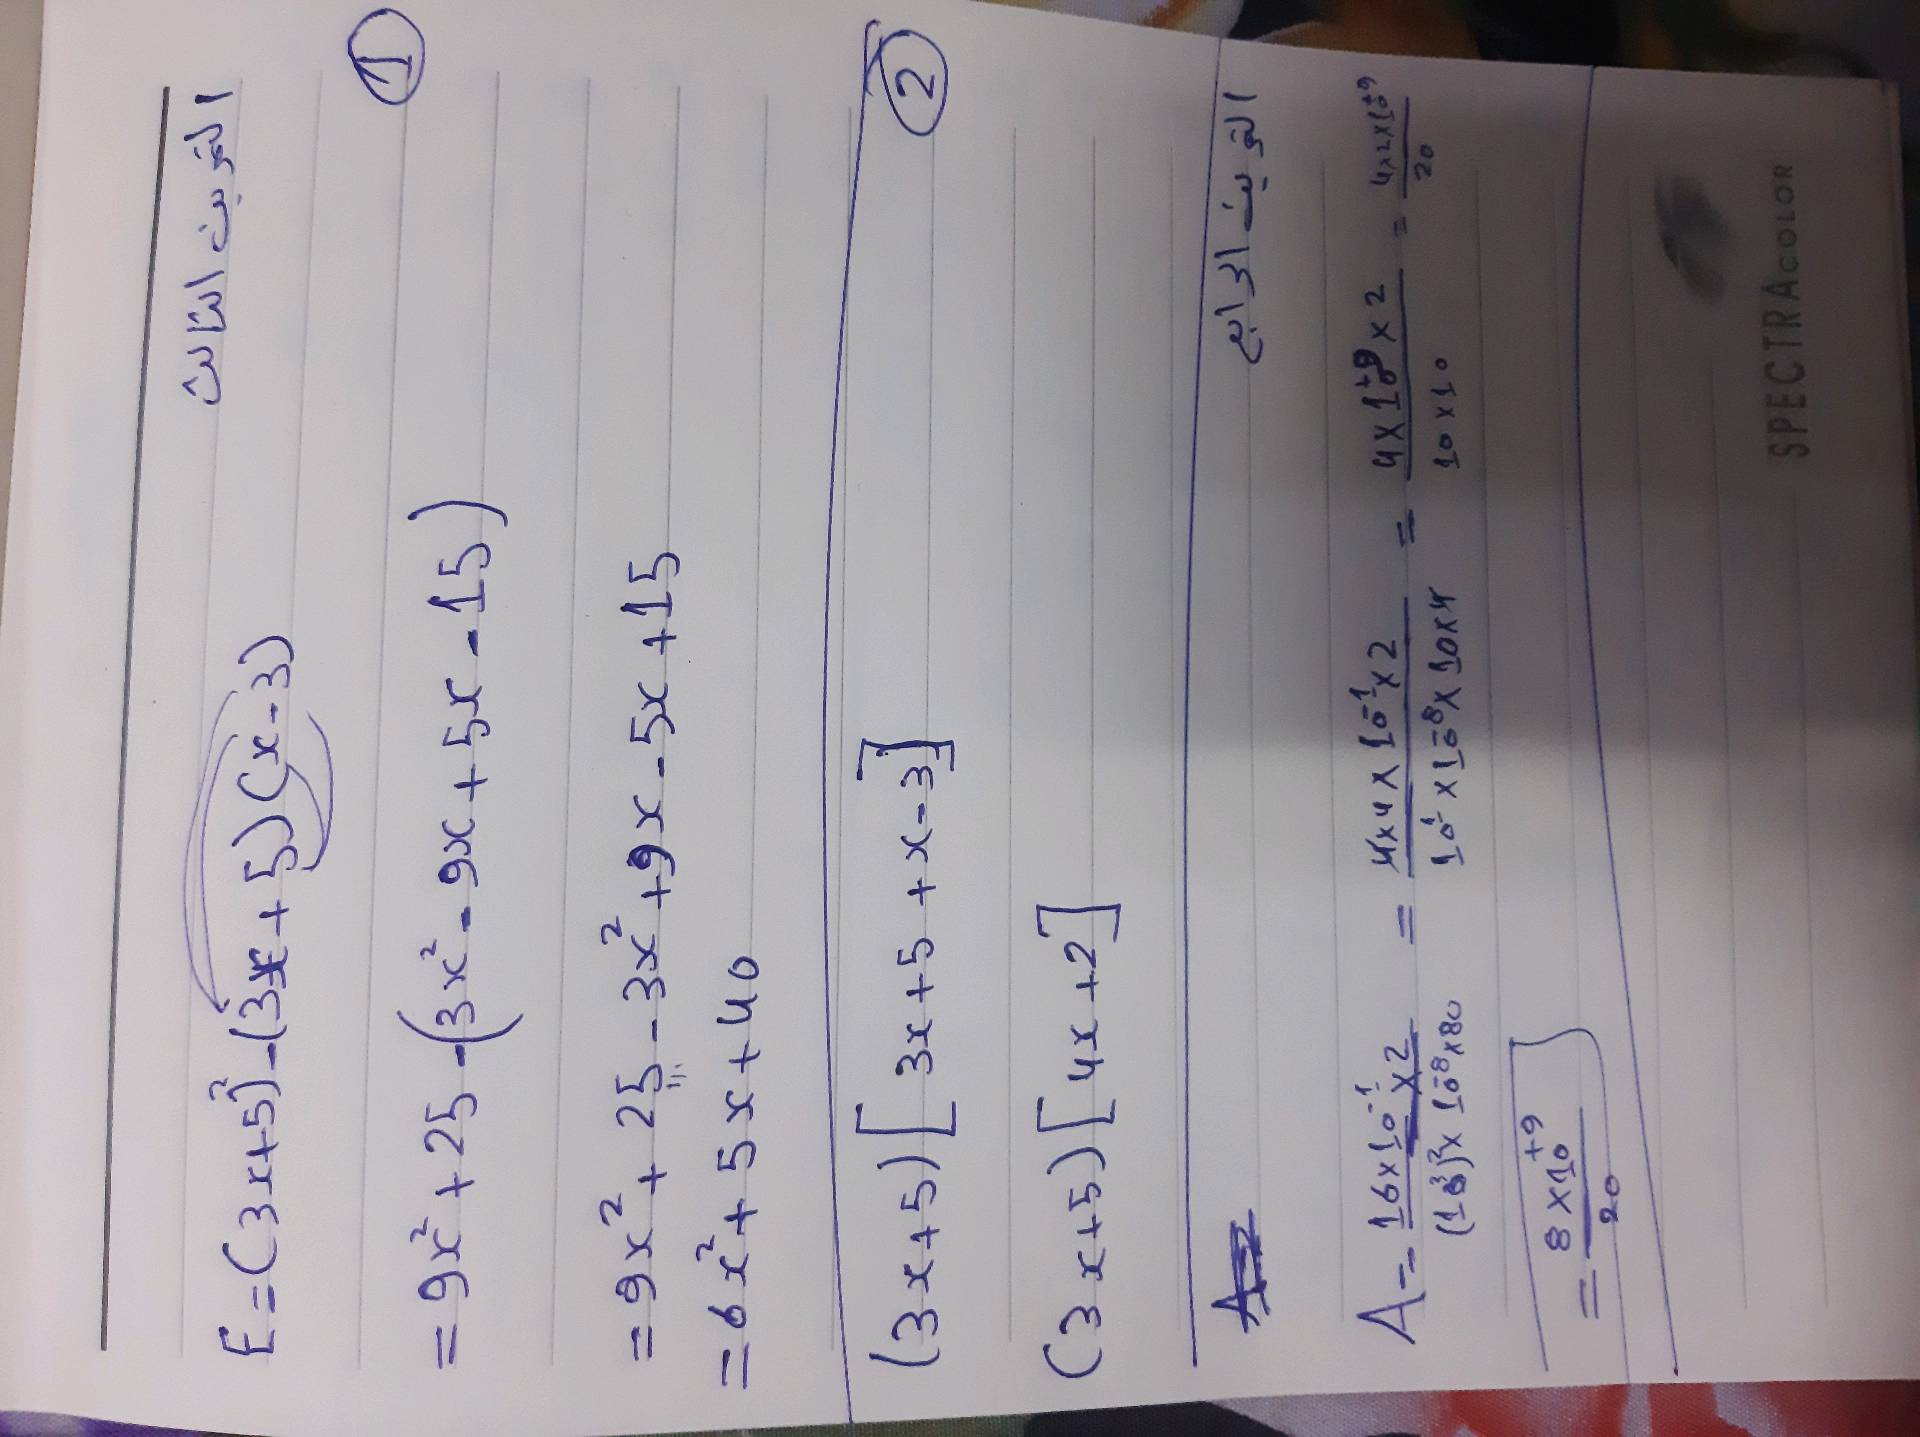 التمرين الثالث
E = (3x+5)² - (3x + 5) (x - 3)
①
= 9x² + 25 - (3x² - 9x + 5x - 15)
= 9x² + 25 - 3x² + 9x - 5x + 15
= 6x² + 5x + 40
②
(3x+5) [3x+5 + x - 3]
(3x+5) [4x + 2]
التمرين الرابع
A = 16×10⁻¹×2 / (10³)²×10⁻⁸×80 = 4×4×10⁻¹×2 / 10⁻¹×10⁻⁸×10×4 = 4×10⁺⁹×2 / 10×10 = 4×2×10⁺⁹ / 20
= 8×10⁺⁹ / 20
SPECTRACOLOR